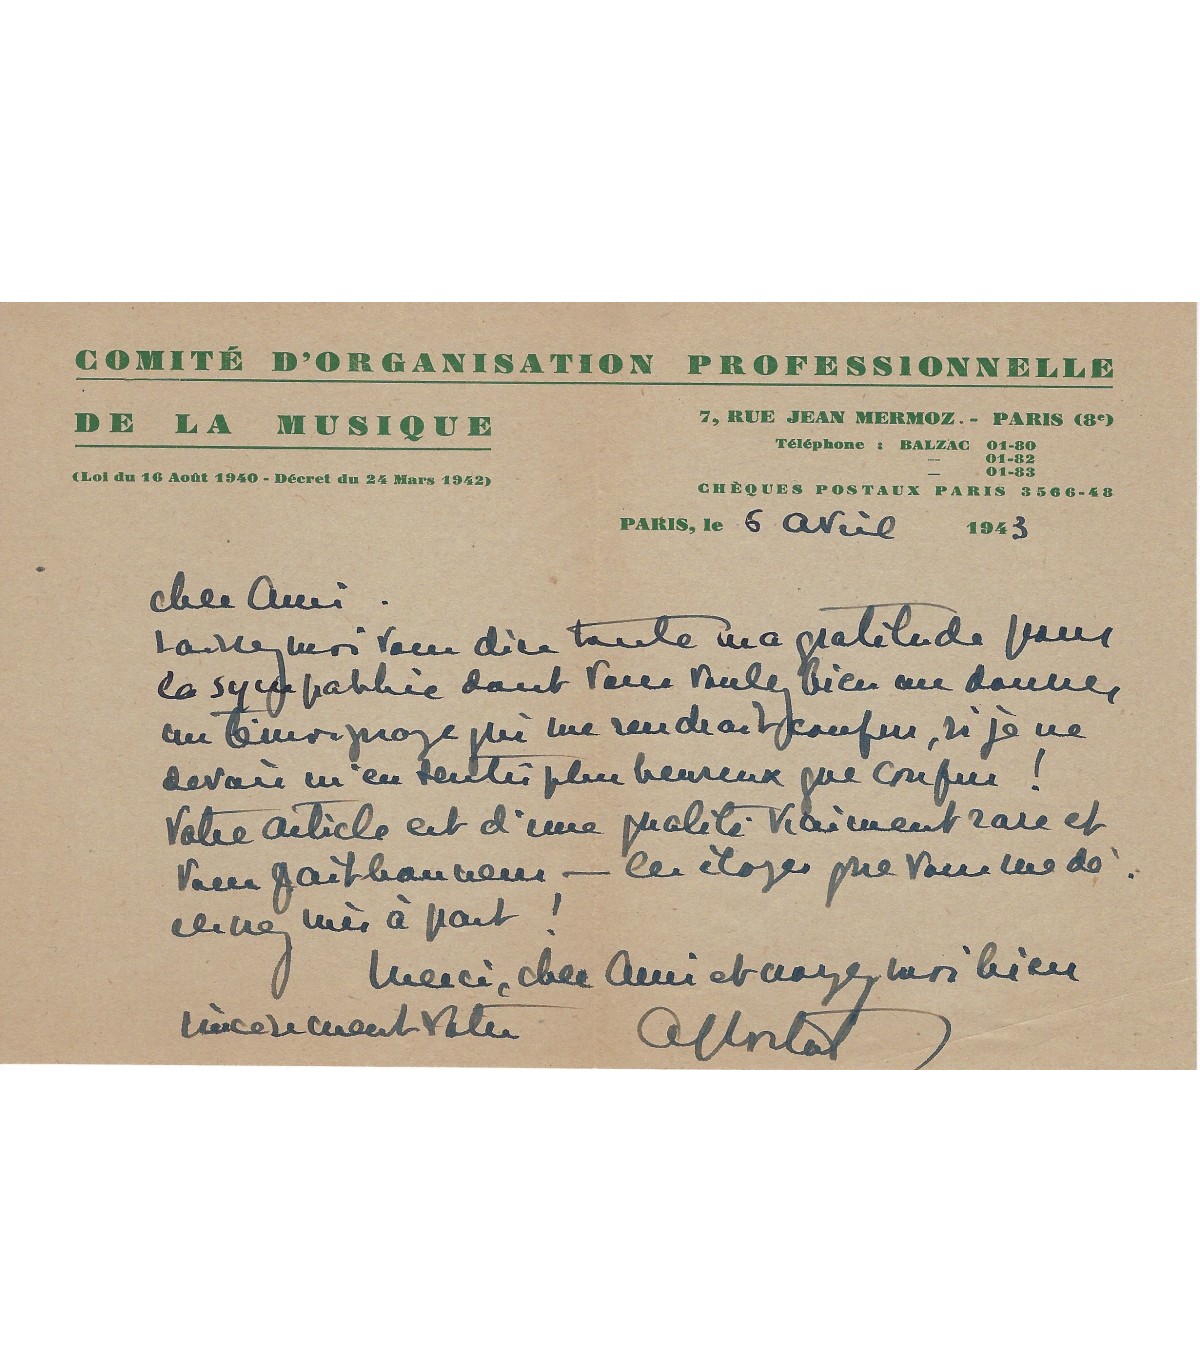 COMITÉ D'ORGANISATION PROFESSIONNELLE
DE LA MUSIQUE
(Loi du 16 Août 1940 - Décret du 24 Mars 1942)
7, RUE JEAN MERMOZ. - PARIS (8e)
Téléphone : BALZAC 01-80
— 01-82
— 01-83
CHÈQUES POSTAUX PARIS 3566-48
PARIS, le 6 avril 1943
Cher Ami.
Laissez moi vous dire toute ma gratitude pour
la sympathie dont vous voulez bien me donner
un témoignage qui me rendrait confus, si je ne
devais m'en sentir plus heureux que confus !
Votre article est d'une qualité vraiment rare et
vous fait honneur, — les éloges que vous me dé-
cernez mis à part !
Merci, cher Ami et croyez moi bien
sincerement votre
A Cortot